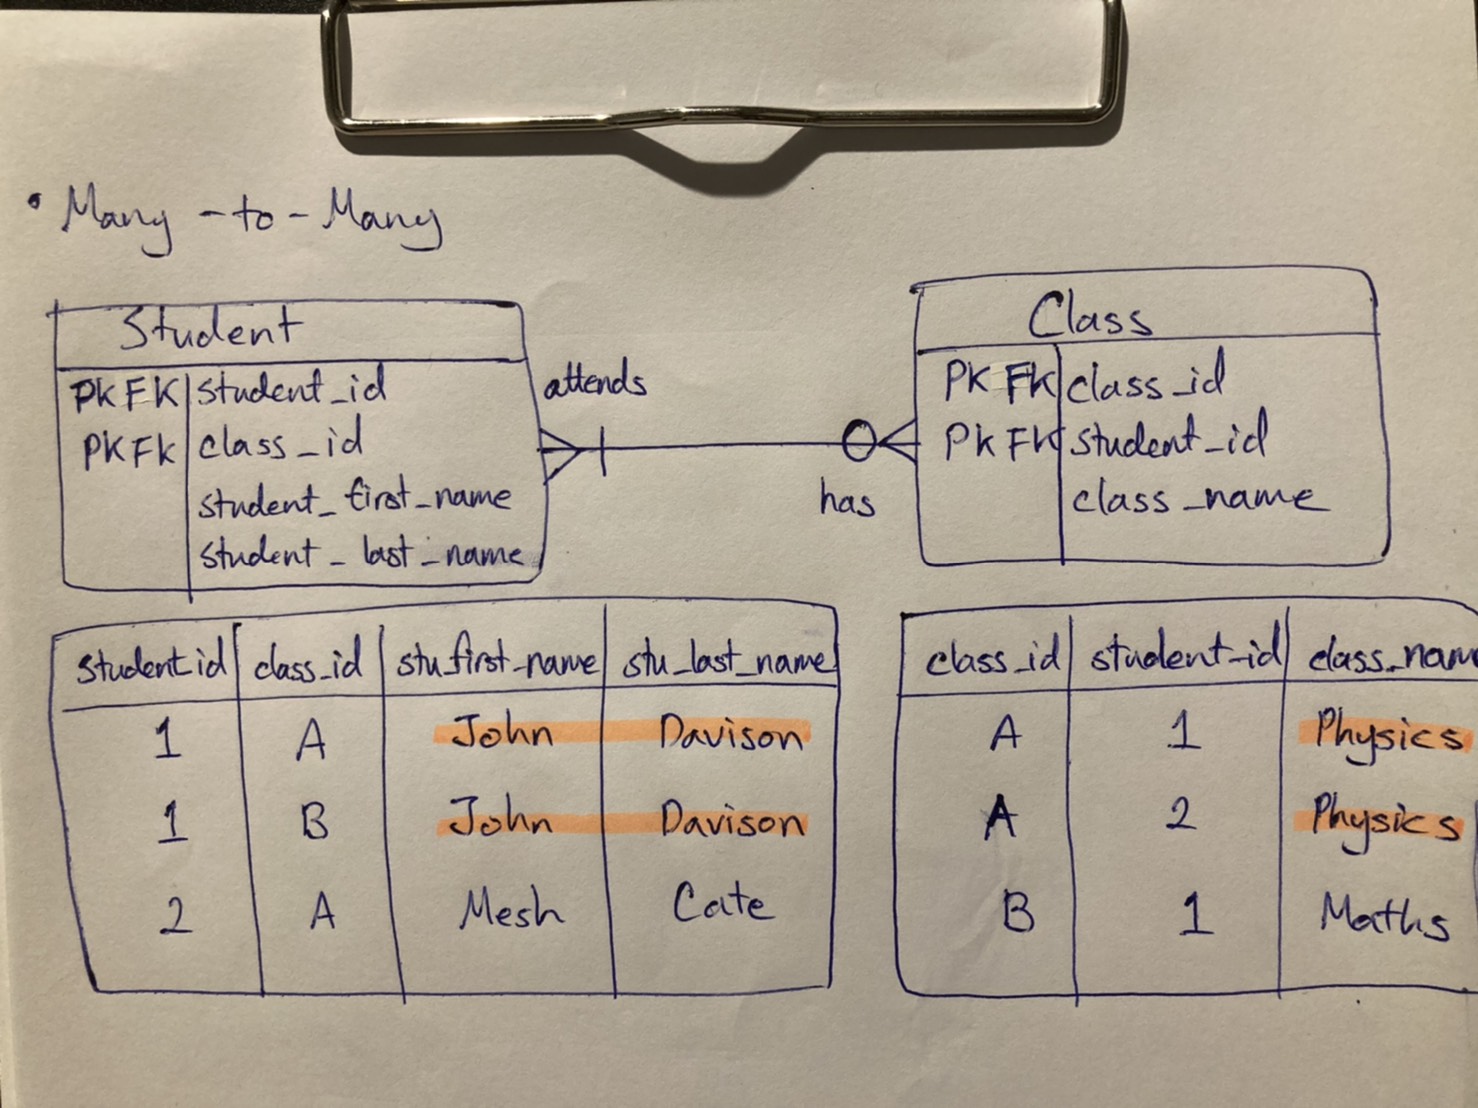 • Many-to-Many
Student
PK FK student_id
PK FK class_id
student_first_name
student_last_name
attends
has
Class
PK FK class_id
PK FK student_id
class_name
student_id class_id stu_first_name stu_last_name
1 A John Davison
1 B John Davison
2 A Mesh Cate
class_id student_id class_nam
A 1 Physics
A 2 Physics
B 1 Maths